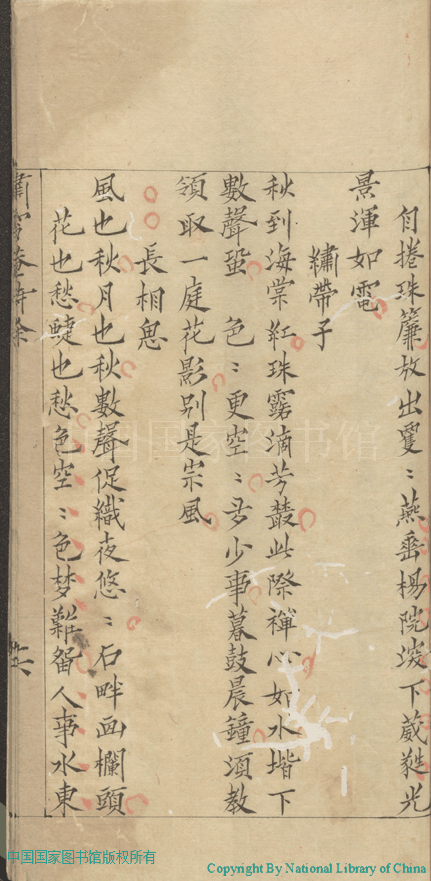 自捲珠簾放出雙〻燕垂楊院落下葳蕤光
景渾如電
繡帶子
秋到海棠紅珠露滴芳叢此際禪心如水堦下
數聲蛩 色〻更空〻多少事暮鼓晨鐘須教
領取一庭花影别是宗風
長相思
風也秋月也秋數聲促織夜悠〻石畔画欄頭
花也愁蜨也愁色空〻色梦難留人事水東
中国国家图书馆
中国国家图书馆版权所有
Copyright By National Library of China